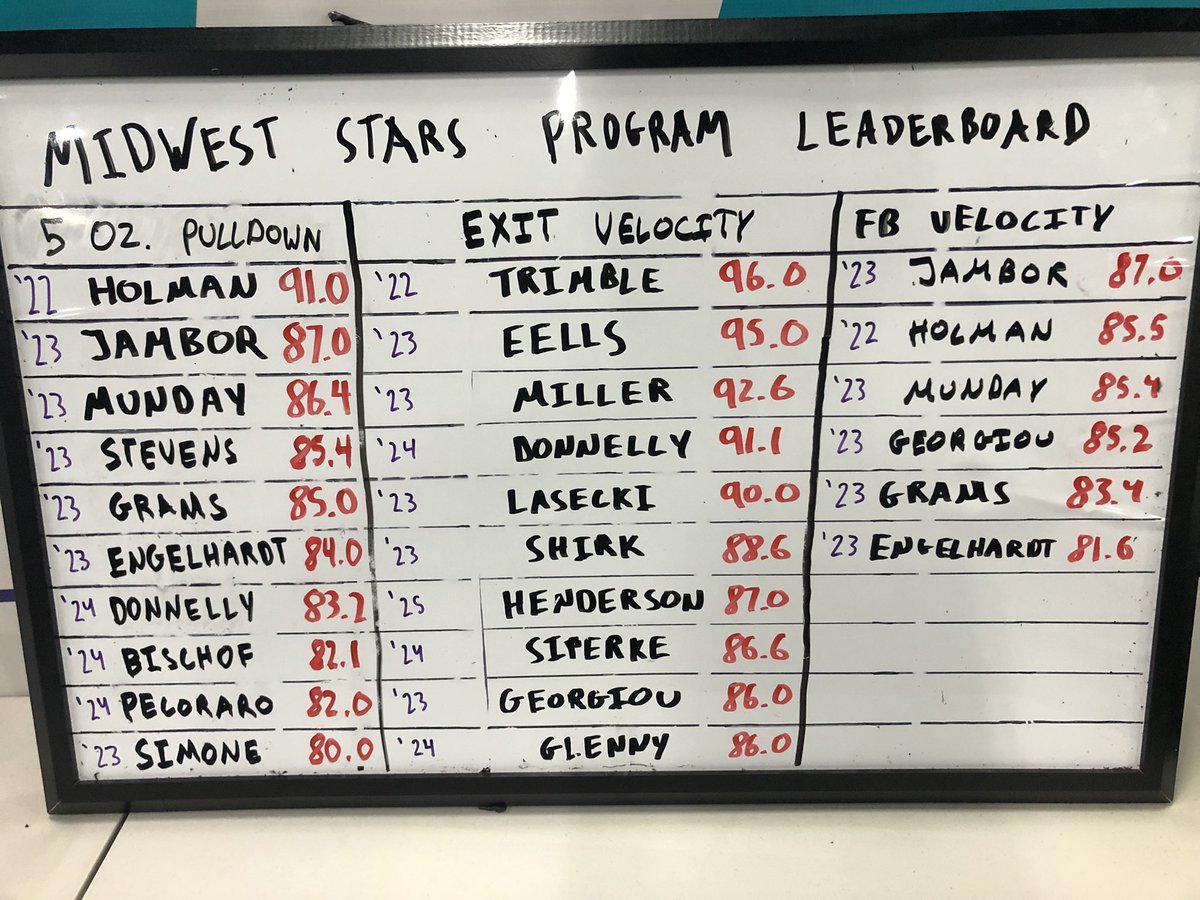 MIDWEST STARS PROGRAM LEADERBOARD
5 OZ. PULLDOWN EXIT VELOCITY FB VELOCITY
'22 HOLMAN 91.0 '22 TRIMBLE 96.0 '23 JAMBOR 87.0
'23 JAMBOR 87.0 '23 EELLS 95.0 '22 HOLMAN 85.5
'23 MUNDAY 86.4 '23 MILLER 92.6 '23 MUNDAY 85.4
'23 STEVENS 85.4 '24 DONNELLY 91.1 '23 GEORGIOU 85.2
'23 GRAMS 85.0 '23 LASECKI 90.0 '23 GRAMS 83.4
'23 ENGELHARDT 84.0 '23 SHIRK 88.6 '23 ENGELHARDT 81.6
'24 DONNELLY 83.2 '25 HENDERSON 87.0
'24 BISCHOF 82.1 '24 SIPERKE 86.6
'24 PECORARO 82.0 '23 GEORGIOU 86.0
'23 SIMONE 80.0 '24 GLENNY 86.0